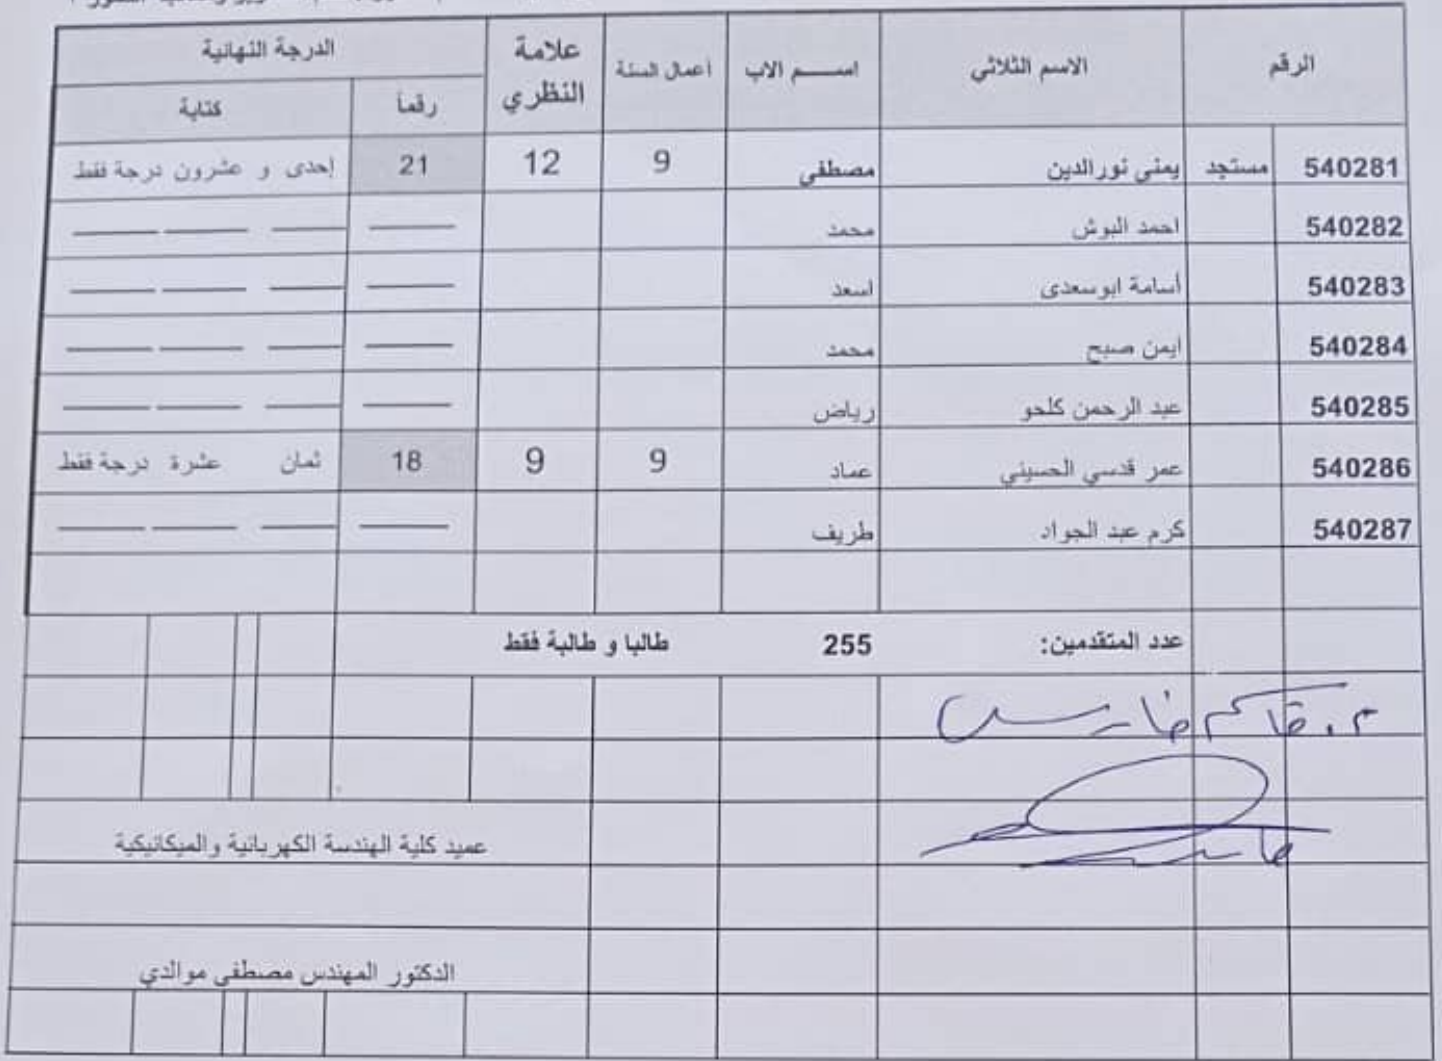 الرقم الاسم الثلاثي اســـم الاب أعمال السنة علامة النظري الدرجة النهائية
رقماً كتابة
540281 مستجد يمنى نورالدين مصطفى 9 12 21 إحدى و عشرون درجة فقط
540282 احمد البوش محمد
540283 أسامة ابوسعدى اسعد
540284 ايمن صبح محمد
540285 عبد الرحمن كلحو رياض
540286 عمر قدسي الحسيني عماد 9 9 18 ثمان عشرة درجة فقط
540287 كرم عبد الجواد طريف
عدد المتقدمين: 255 طالبا و طالبة فقط
م. قاسم فارس
عميد كلية الهندسة الكهربائية والميكانيكية
الدكتور المهندس مصطفى موالدي